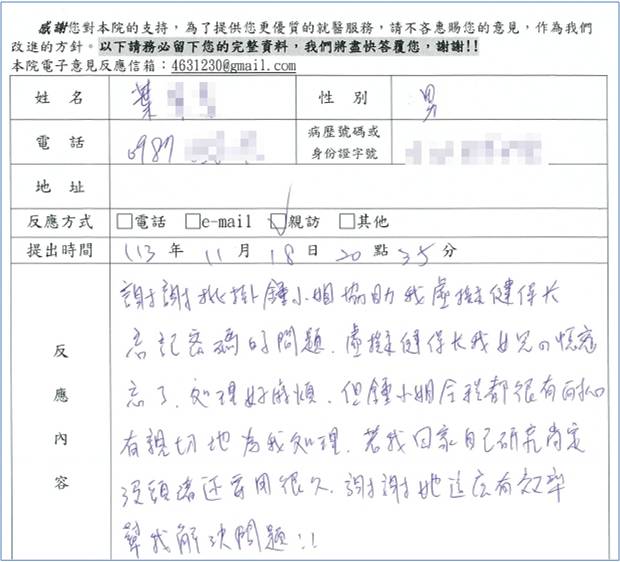 感謝您對本院的支持，為了提供您更優質的就醫服務，請不吝惠賜您的意見，作為我們
改進的方針。以下請務必留下您的完整資料，我們將盡快答覆您，謝謝!!
本院電子意見反應信箱：4631230@gmail.com
姓 名 葉 性 別 男
電 話 0987 病歷號碼或身份證字號
地 址
反應方式 □電話 □e-mail ☑親訪 □其他
提出時間 113 年 11 月 18 日 20 點 35 分
反應內容
謝謝批掛鍾小姐協助我虛擬健保卡
忘記密碼的問題，虛擬健保卡我女兒
忘了，處理好麻煩，但鍾小姐全程都很有耐心
有親切地為我處理，若我回家自己研究肯定
沒頭緒還要用很久，謝謝她這麼有效率
幫我解決問題!!